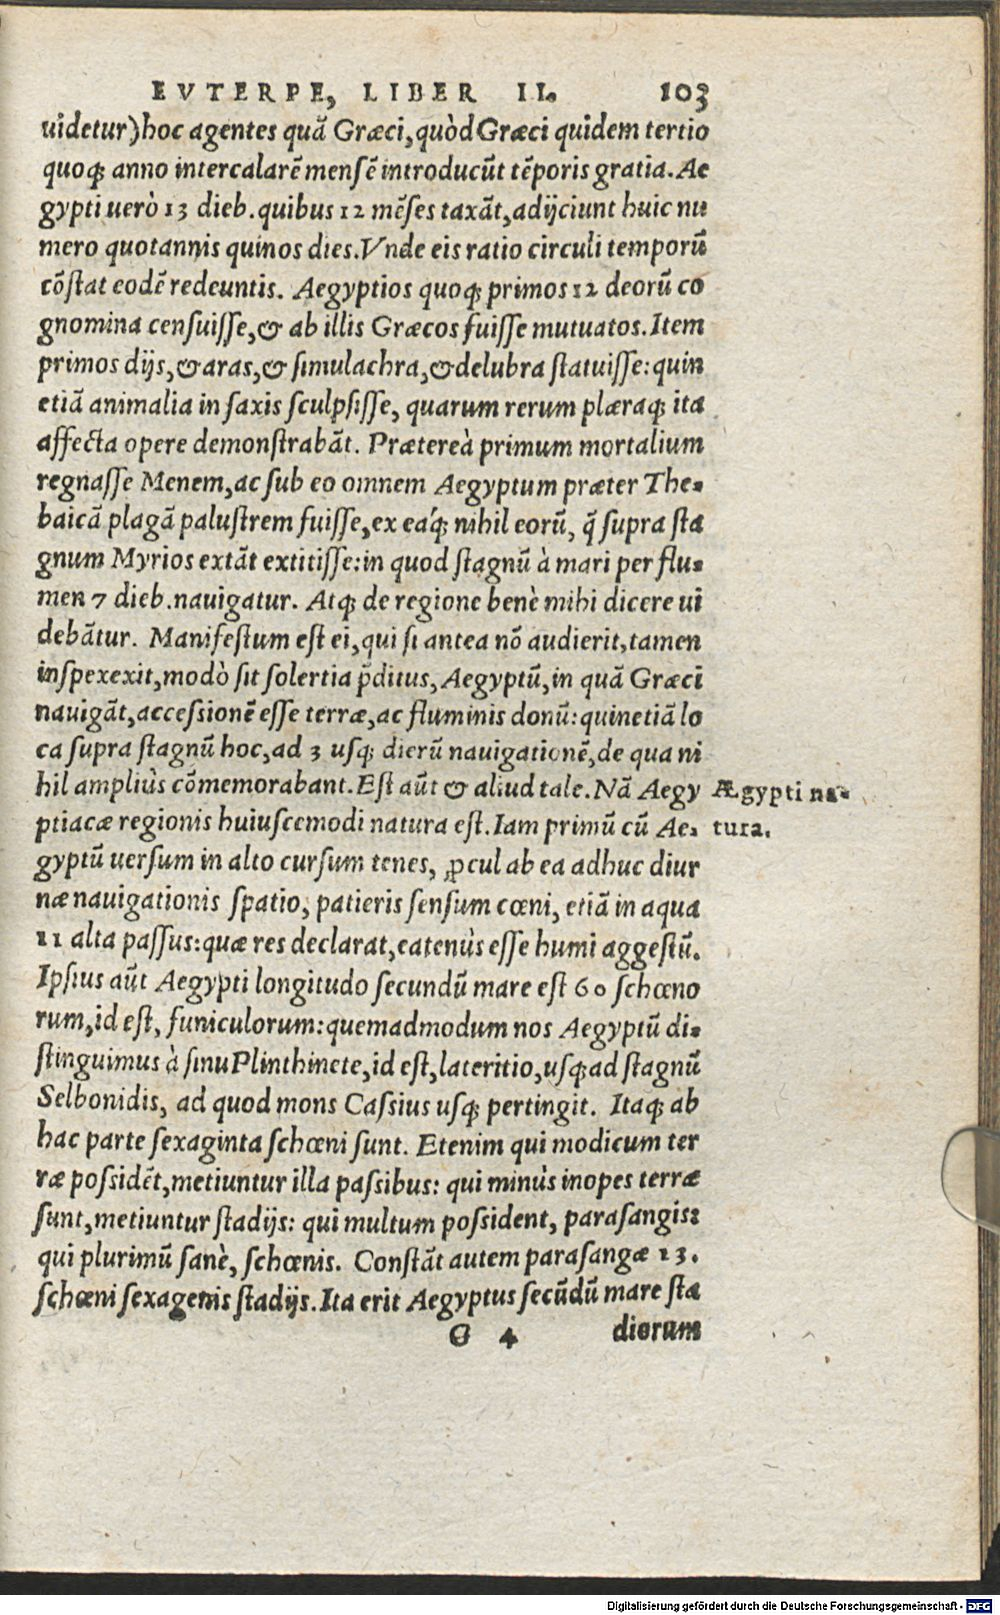 EVTERPE, LIBER II. 103
uidetur) hoc agentes quã Græci, quòd Græci quidem tertio
quoq; anno intercalarẽ mensẽ introducũt tẽporis gratia. Ae
gypti uerò 13 dieb. quibus 12 mẽses taxãt, adijciunt huic nu
mero quotannis quinos dies. Vnde eis ratio circuli temporũ
cõstat eodẽ redeuntis. Aegyptios quoq; primos 12 deorũ co
gnomina censuisse, & ab illis Græcos fuisse mutuatos. Item
primos dijs, & aras, & simulachra, & delubra statuisse: quin
etiã animalia in saxis sculpsisse, quarum rerum plæraq; ita
affecta opere demonstrabãt. Prætereà primum mortalium
regnasse Menem, ac sub eo omnem Aegyptum præter The-
baicã plagã palustrem fuisse, ex eáq; nihil eorũ, q̃ supra sta
gnum Myrios extãt extitisse: in quod stagnũ à mari per flu-
men 7 dieb. nauigatur. Atq; de regione benè mihi dicere ui
debãtur. Manifestum est ei, qui si antea nõ audierit, tamen
inspexexit, modò sit solertia p̃ditus, Aegyptũ, in quã Græci
nauigãt, accessionẽ esse terræ, ac fluminis donũ: quinetiã lo
ca supra stagnũ hoc, ad 3 usq; dierũ nauigationẽ, de qua ni
hil ampliùs cõmemorabant. Est aũt & aliud tale. Nã Aegy
ptiacæ regionis huiuscemodi natura est. Iam primũ cũ Ae-
gyptũ uersum in alto cursum tenes, ꝓcul ab ea adhuc diur
næ nauigationis spatio, patieris sensum cœni, etiã in aqua
11 alta passus: quæ res declarat, eatenùs esse humi aggestũ.
Ipsius aũt Aegypti longitudo secundũ mare est 60 schœno
rum, id est, funiculorum: quemadmodum nos Aegyptũ di-
stinguimus à sinu Plinthinete, id est, lateritio, usq; ad stagnũ
Selbonidis, ad quod mons Cassius usq; pertingit. Itaq; ab
hac parte sexaginta schœni sunt. Etenim qui modicum ter
ræ possidẽt, metiuntur illa passibus: qui minùs inopes terræ
sunt, metiuntur stadijs: qui multum possident, parasangis:
qui plurimũ sanè, schœnis. Constãt autem parasangæ 13.
schœni sexagenis stadijs. Ita erit Aegyptus secũdũ mare sta
G 4 diorum
Ægypti na-
tura.
Digitalisierung gefördert durch die Deutsche Forschungsgemeinschaft - DFG